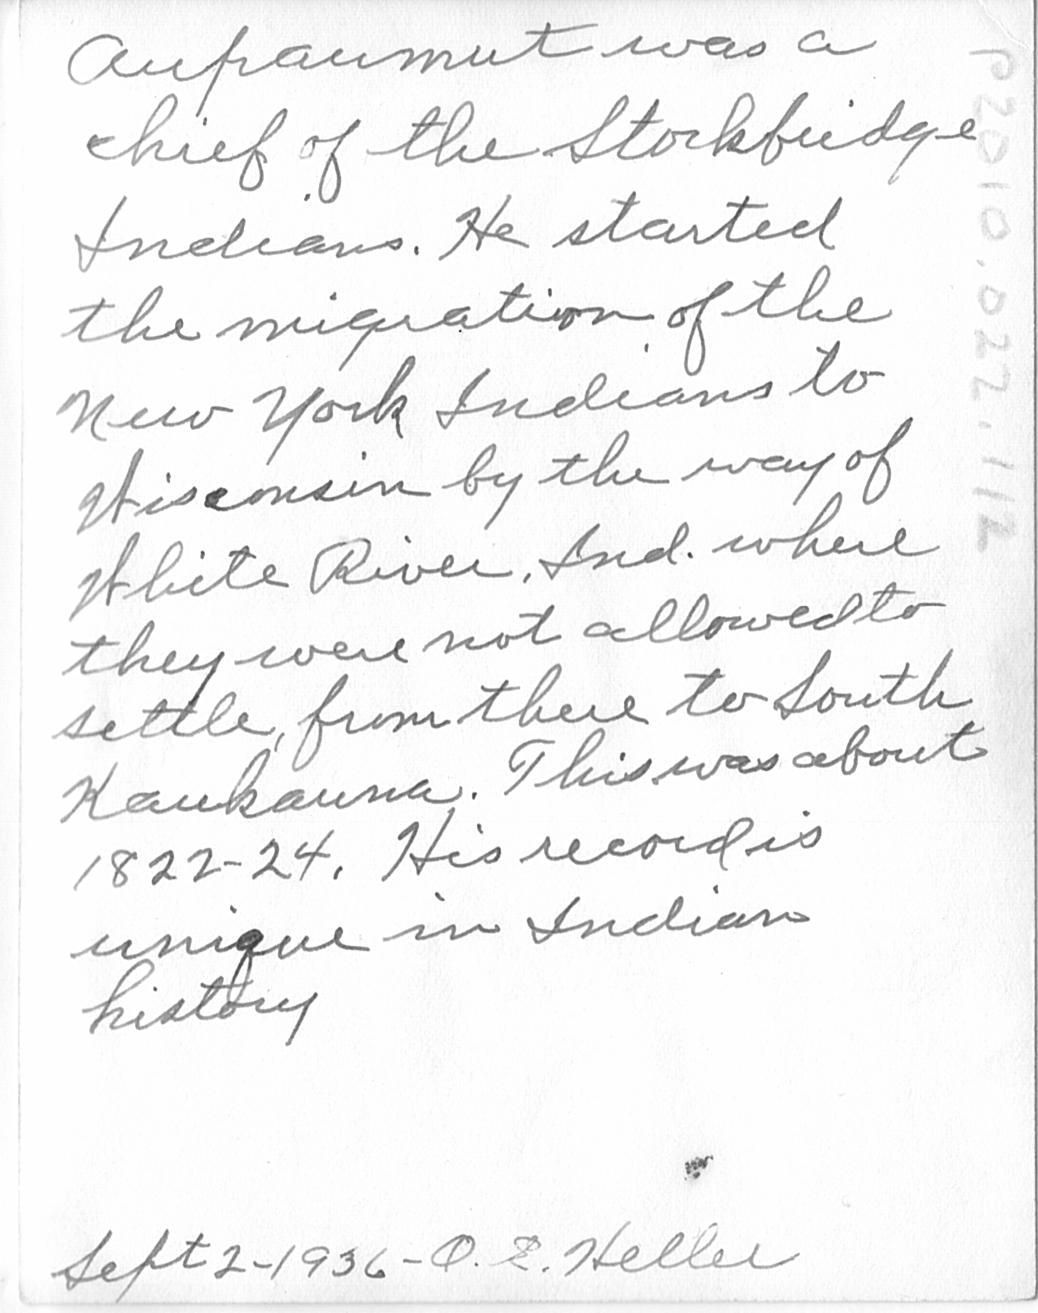 Aupaumut was a
chief of the Stockbridge
Indians. He started
the migration of the
New York Indians to
Wisconsin by the way of
White River, Ind. where
they were not allowed to
settle, from there to South
Kaukauna. This was about
1822-24. His record is
unique in Indian
history
Sept 2-1936-O. E. Heller
P2010.022.112